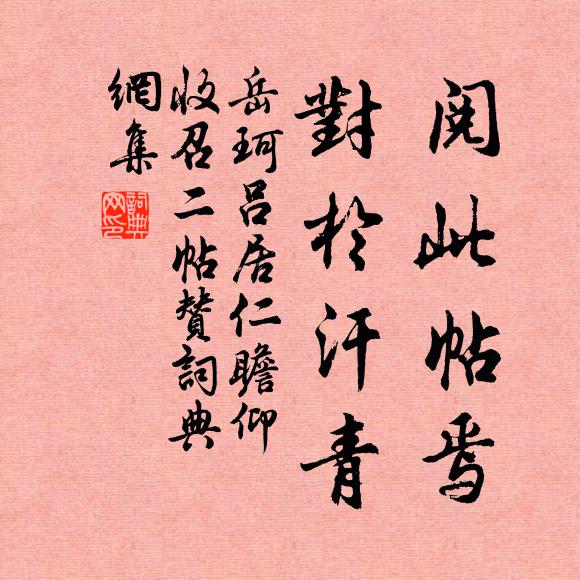 閱此帖焉
對於汗青
岳珂吕居仁瞻仰
收召二帖贊詞典
網集
詞典網印